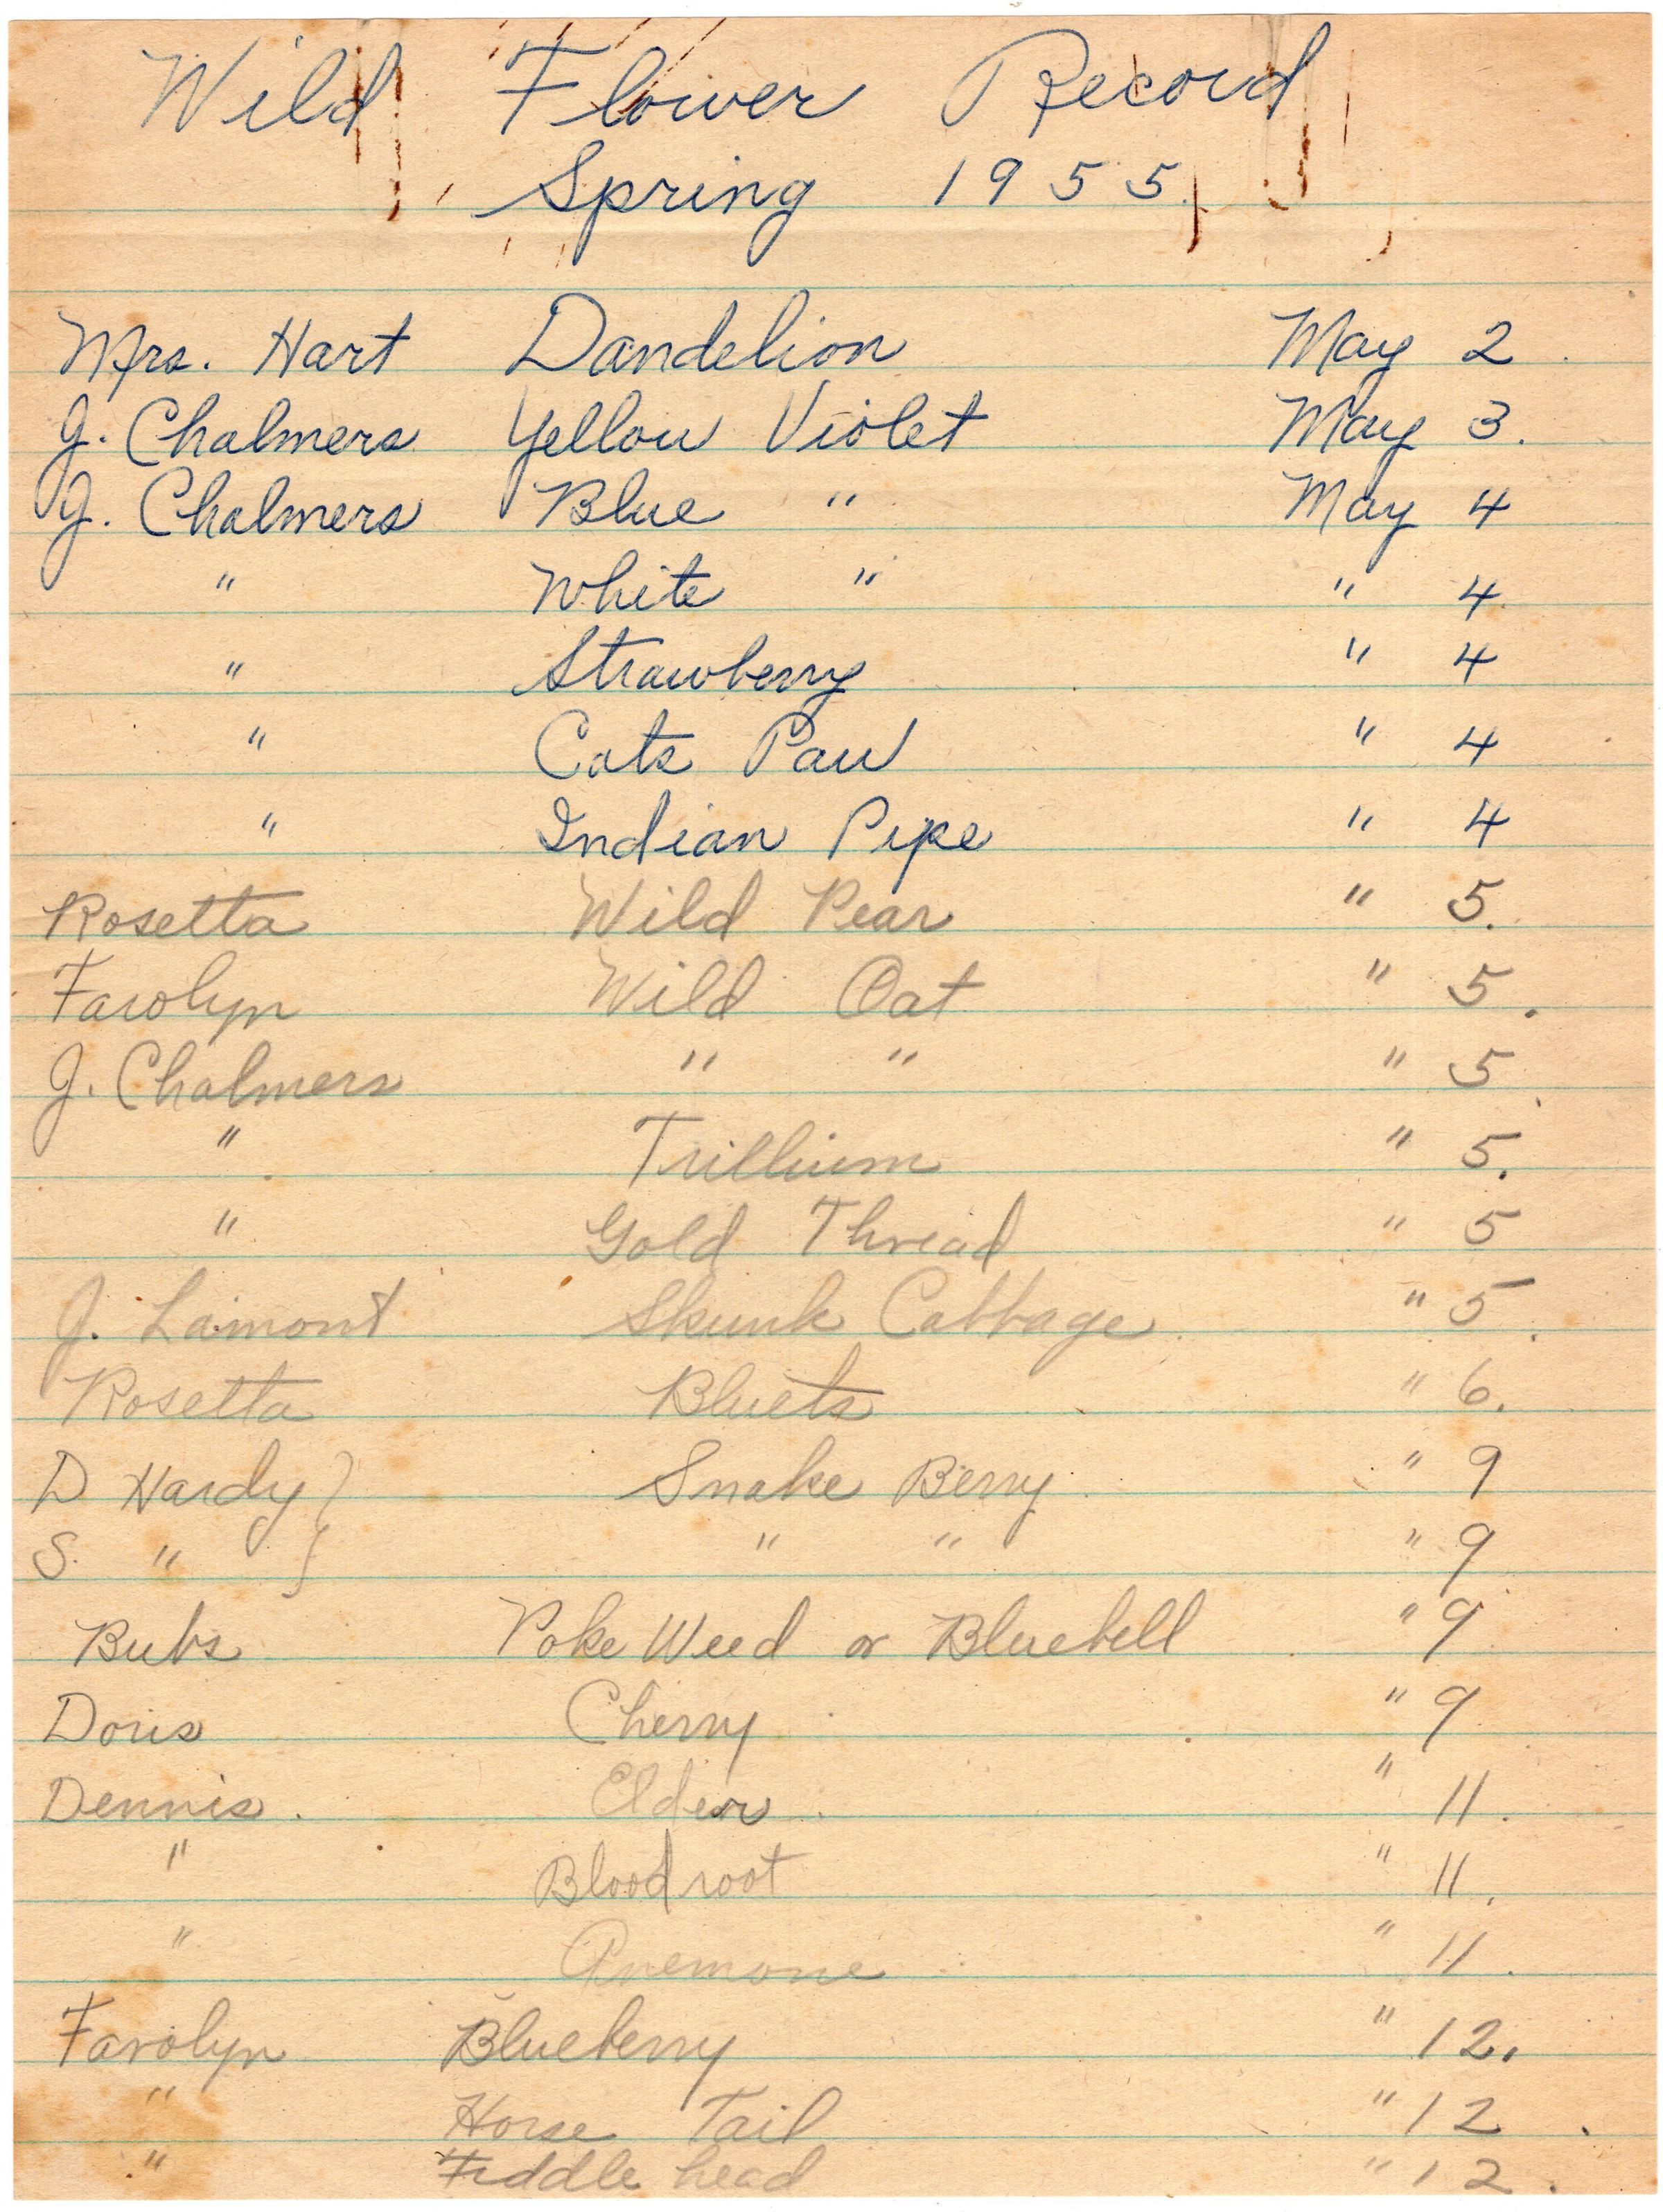 Wild Flower Record
Spring 1955.
Mrs. Hart Dandelion May 2.
J. Chalmers Yellow Violet May 3.
J. Chalmers Blue " May 4
" White " " 4.
" Strawberry " 4
" Cats Paw " 4
" Indian Pipe " 4
Rosetta Wild Pear " 5.
Farolyn Wild Oat " 5.
J. Chalmers " " " 5.
" Trillium " 5.
" Gold Thread " 5
J. Lamont Skunk Cabbage. " 5.
Rosetta Bluets " 6.
D Hardy } Snake Berry " 9
S. " } " " " 9
Bubs Poke Weed or Bluebell " 9
Doris Cherry " 9
Dennis. Elder. " 11.
" Bloodroot " 11.
" Anemone " 11.
Farolyn Blueberry " 12.
" Horse Tail " 12.
" Fiddle head " 12.